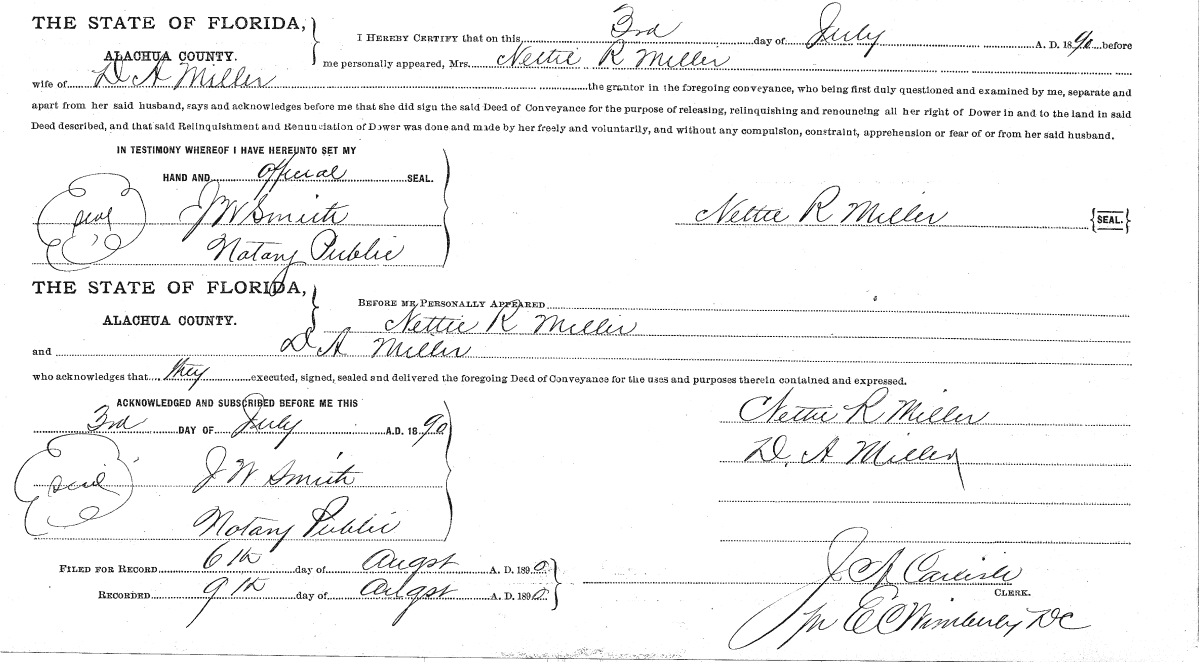 THE STATE OF FLORIDA,
ALACHUA COUNTY.
I HEREBY CERTIFY that on this 3rd day of July A. D. 1890 before
me personally appeared, Mrs. Nettie R Miller
wife of D A Miller the grantor in the foregoing conveyance, who being first duly questioned and examined by me, separate and
apart from her said husband, says and acknowledges before me that she did sign the said Deed of Conveyance for the purpose of releasing, relinquishing and renouncing all her right of Dower in and to the land in said
Deed described, and that said Relinquishment and Renunciation of Dower was done and made by her freely and voluntarily, and without any compulsion, constraint, apprehension or fear of or from her said husband.
IN TESTIMONY WHEREOF I HAVE HEREUNTO SET MY
HAND AND official SEAL.
seal J W Smith
Notary Public
Nettie R Miller {SEAL.}
THE STATE OF FLORIDA,
ALACHUA COUNTY.
BEFORE ME PERSONALLY APPEARED
Nettie R Miller
and D A Miller
who acknowledges that they executed, signed, sealed and delivered the foregoing Deed of Conveyance for the uses and purposes therein contained and expressed.
ACKNOWLEDGED AND SUBSCRIBED BEFORE ME THIS
3rd DAY OF July A.D. 1890
seal J W Smith
Notary Public
Nettie R Miller
D. A Miller
FILED FOR RECORD 6th day of Augst A. D. 1890
RECORDED 9th day of Augst A. D. 1890
J A Carlisle
CLERK.
pr E C Wimberly DC